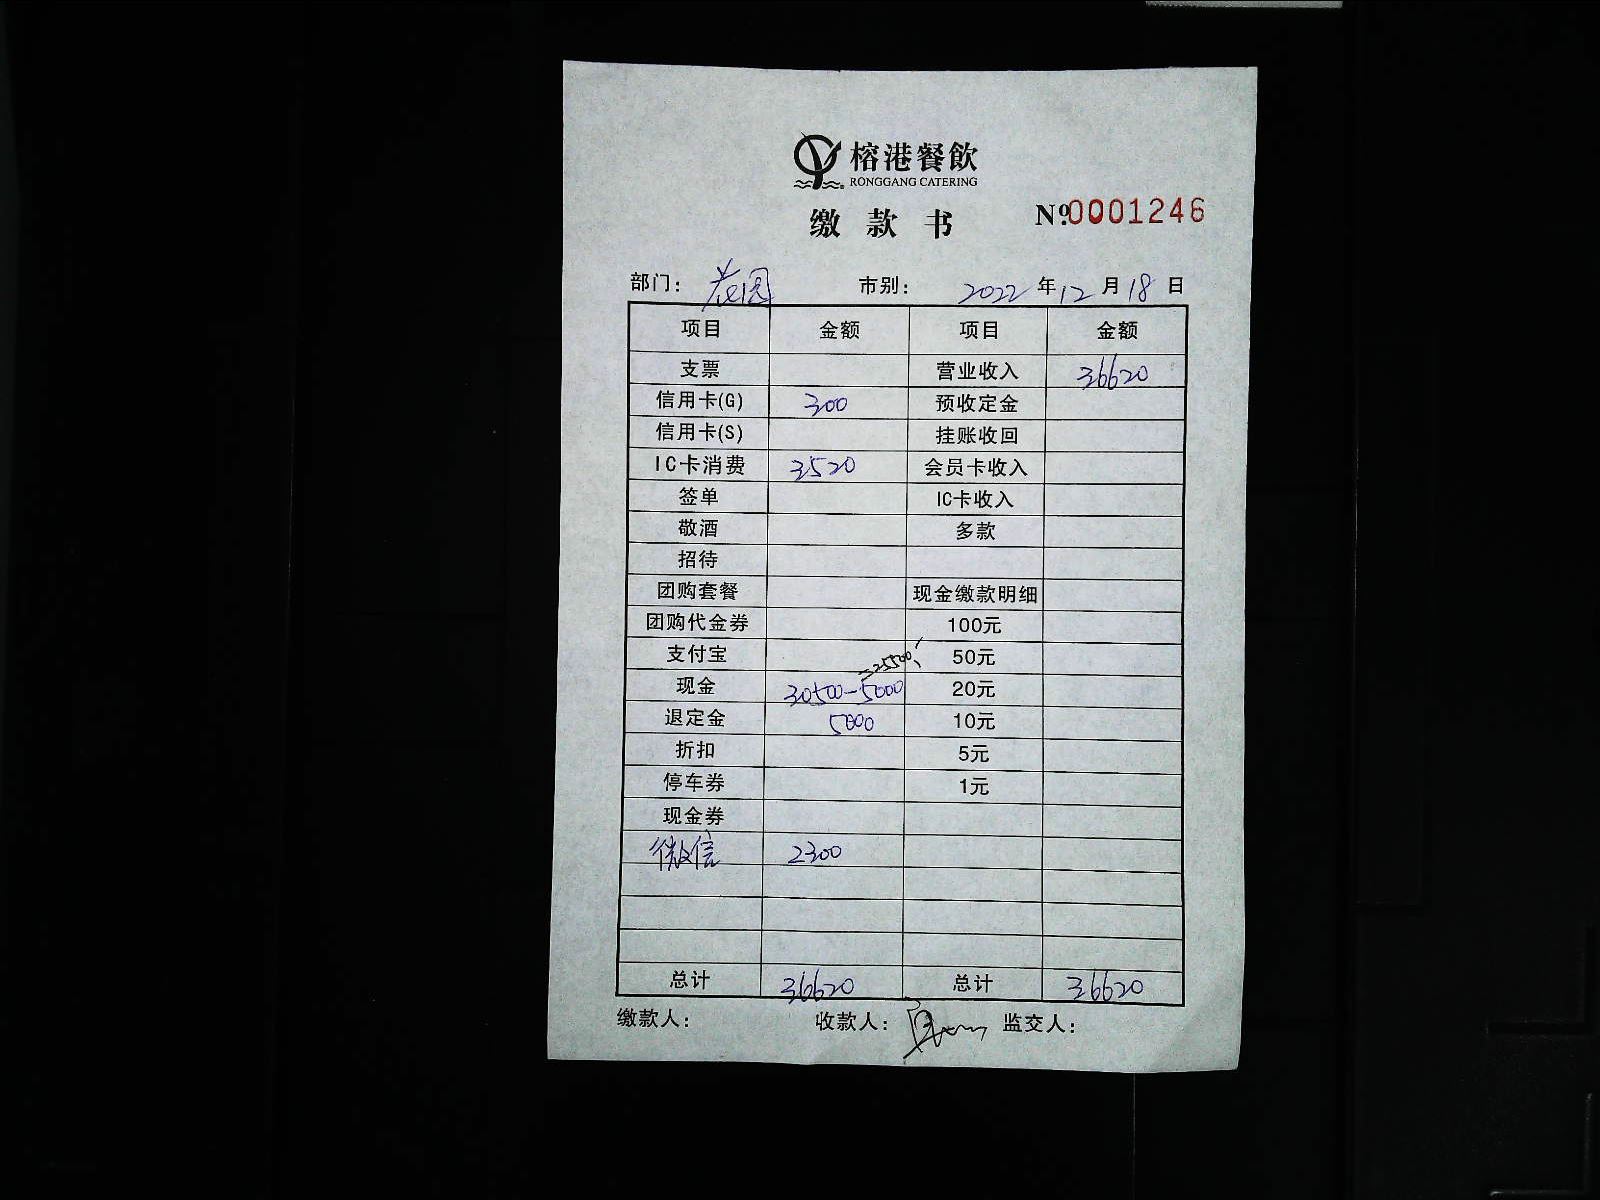 榕港餐飲
RONGGANG CATERING
缴款书 №0001246
部门: 花园 市别: 2022年12月18日
项目 金额 项目 金额
支票 营业收入 36620
信用卡(G) 300 预收定金
信用卡(S) 挂账收回
IC卡消费 3520 会员卡收入
签单 IC卡收入
敬酒 多款
招待
团购套餐 现金缴款明细
团购代金券 100元
支付宝 50元
=25500
现金 30500-5000 20元
退定金 5000 10元
折扣 5元
停车券 1元
现金券
微信 2300
总计 36620 总计 36620
缴款人: 收款人: 监交人: